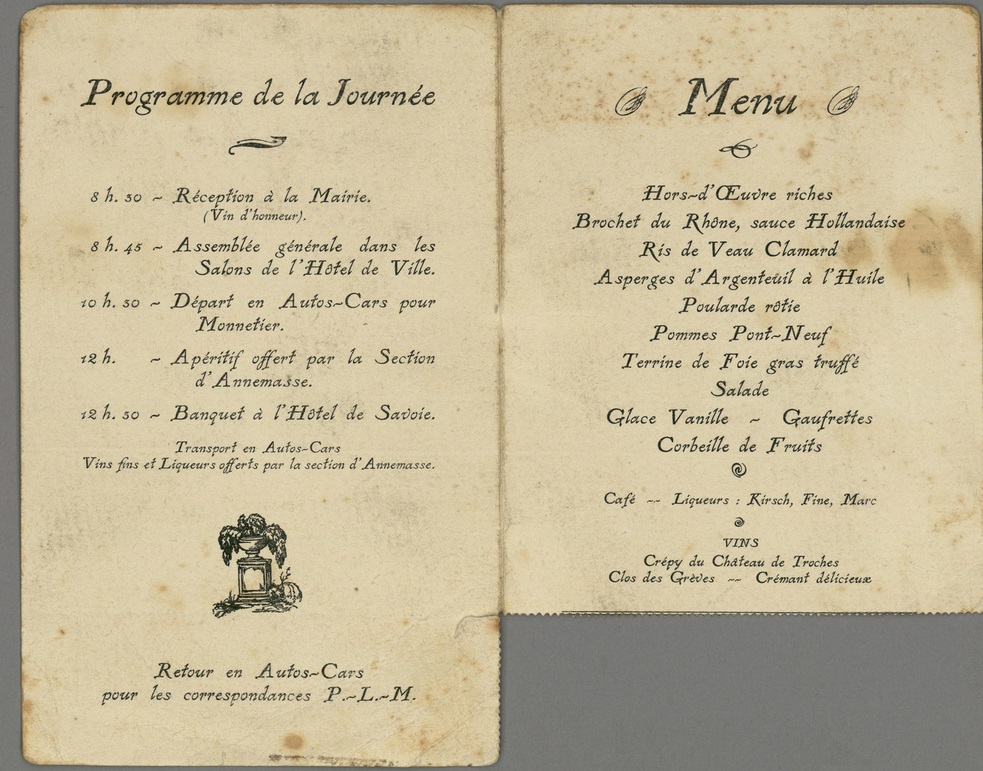 Programme de la Journée
8 h. 30 ~ Réception à la Mairie.
(Vin d'honneur).
8 h. 45 ~ Assemblée générale dans les
Salons de l'Hôtel de Ville.
10 h. 30 ~ Départ en Autos~Cars pour
Monnetier.
12 h. ~ Apéritif offert par la Section
d'Annemasse.
12 h. 30 ~ Banquet à l'Hôtel de Savoie.
Transport en Autos~Cars
Vins fins et Liqueurs offerts par la section d'Annemasse.
Retour en Autos~Cars
pour les correspondances P.~L.~M.
Menu
Hors~d'Œuvre riches
Brochet du Rhône, sauce Hollandaise
Ris de Veau Clamard
Asperges d'Argenteuil à l'Huile
Poularde rôtie
Pommes Pont~Neuf
Terrine de Foie gras truffé
Salade
Glace Vanille ~ Gaufrettes
Corbeille de Fruits
Café ~~ Liqueurs : Kirsch, Fine, Marc
VINS
Crépy du Château de Troches
Clos des Grèves ~~ Crémant délicieux